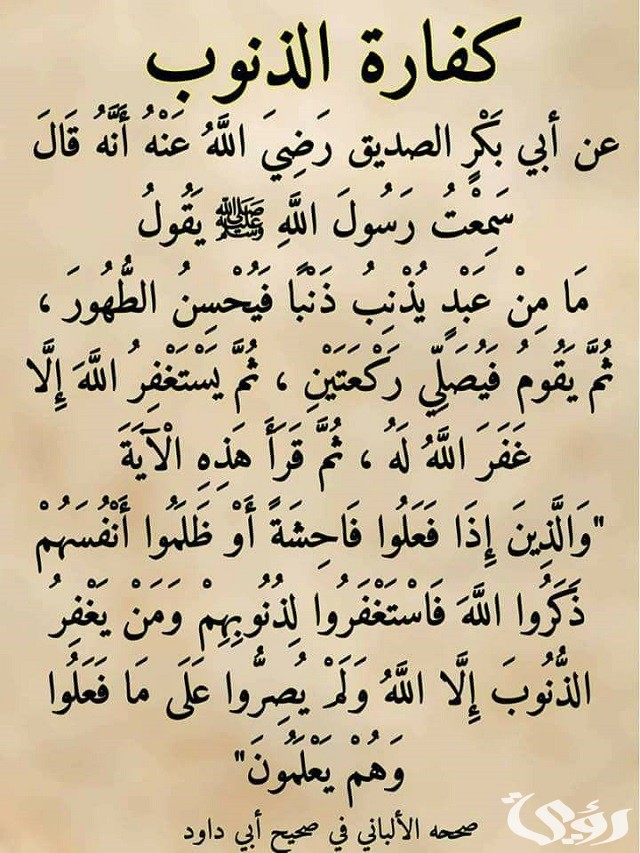 كفارة الذنوب
عن أبي بَكْرٍ الصديق رَضِيَ اللَّهُ عَنْهُ أَنَّهُ قَالَ
سَمِعْتُ رَسُولَ اللَّهِ ﷺ يَقُولُ
مَا مِنْ عَبْدٍ يُذْنِبُ ذَنْبًا فَيُحْسِنُ الطُّهُورَ ،
ثُمَّ يَقُومُ فَيُصَلِّي رَكْعَتَيْنِ ، ثُمَّ يَسْتَغْفِرُ اللَّهَ إِلَّا
غَفَرَ اللَّهُ لَهُ ، ثُمَّ قَرَأَ هَذِهِ الْآيَةَ
"وَالَّذِينَ إِذَا فَعَلُوا فَاحِشَةً أَوْ ظَلَمُوا أَنْفُسَهُمْ
ذَكَرُوا اللَّهَ فَاسْتَغْفَرُوا لِذُنُوبِهِمْ وَمَنْ يَغْفِرُ
الذُّنُوبَ إِلَّا اللَّهُ وَلَمْ يُصِرُّوا عَلَى مَا فَعَلُوا
وَهُمْ يَعْلَمُونَ"
صححه الألباني في صحيح أبي داود
رؤية